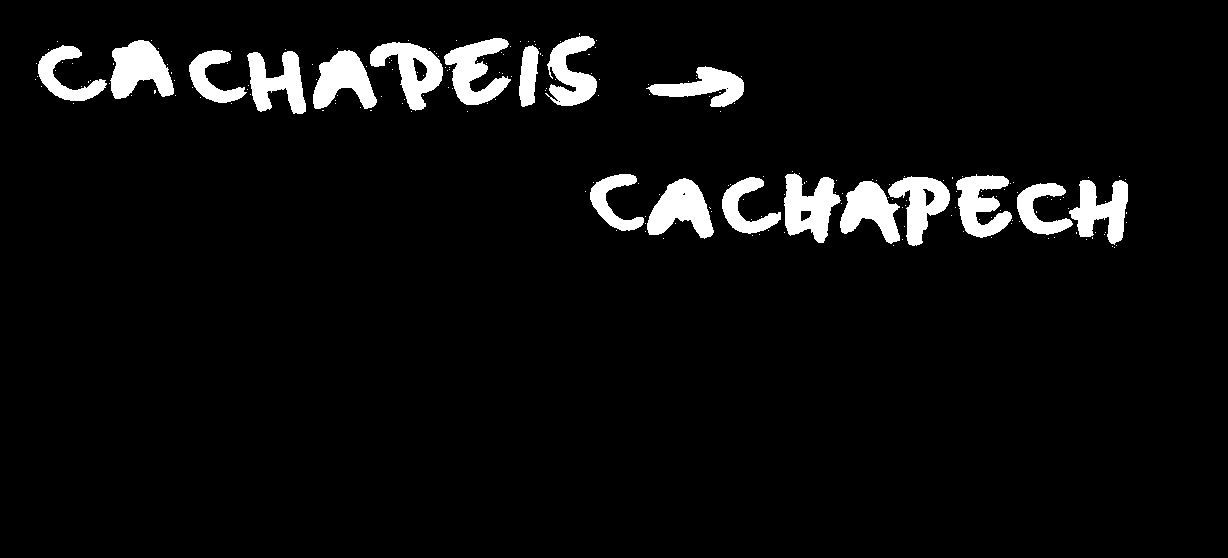 CACHAPEIS →
CACHAPECH